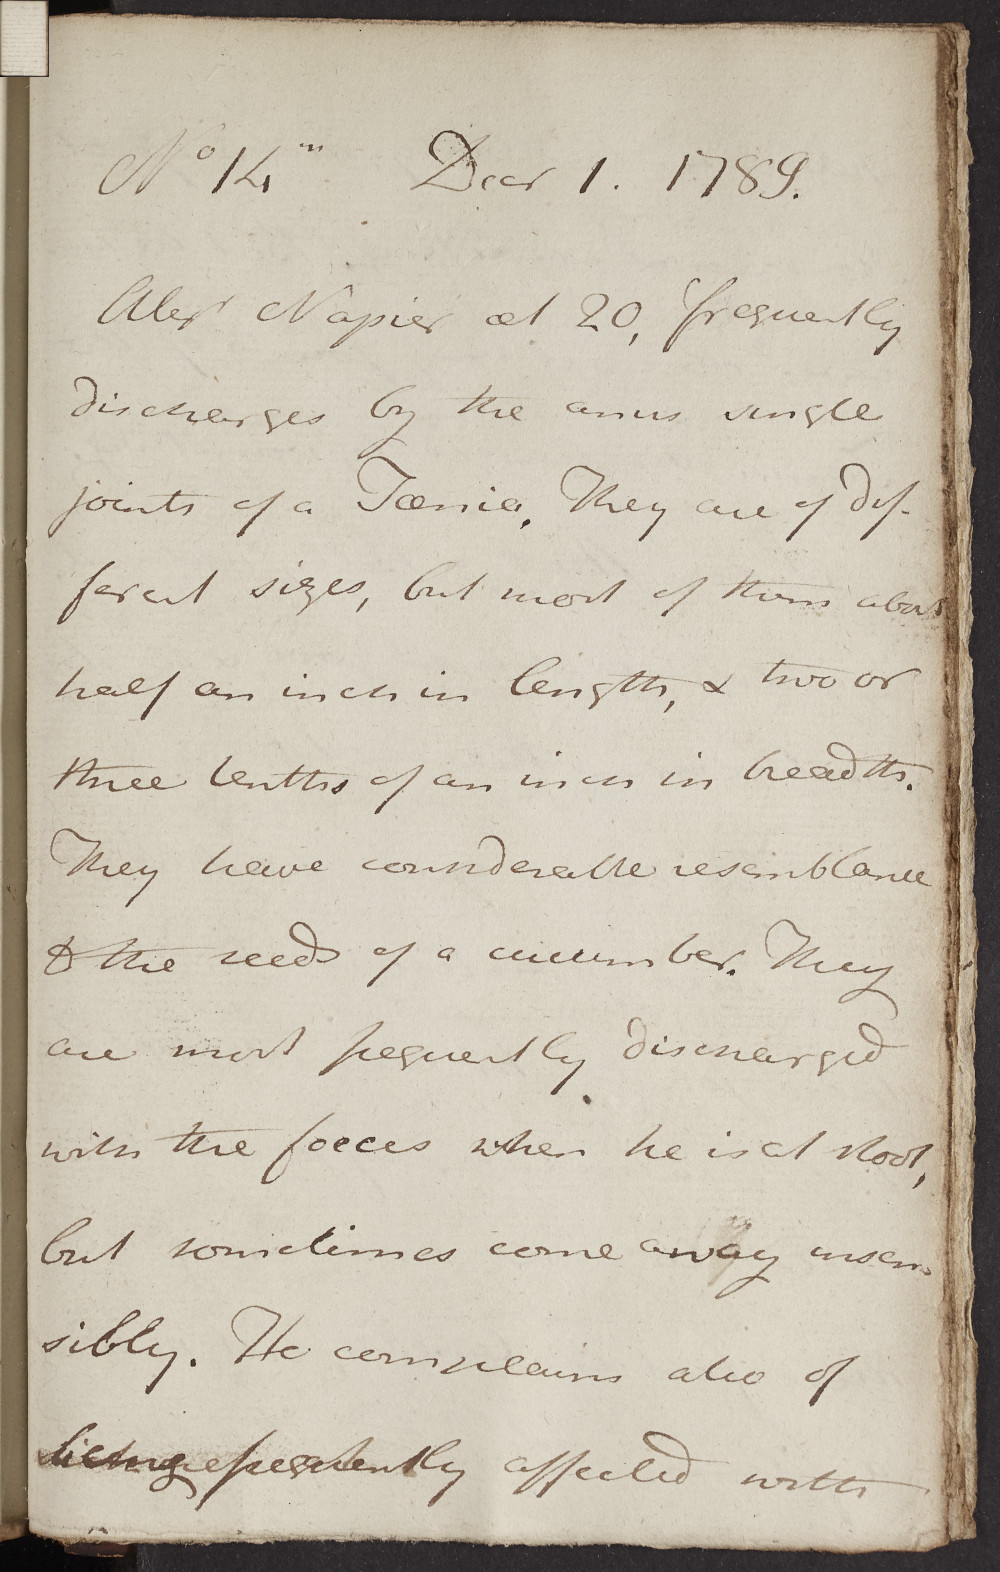 No 14m Decr 1. 1789.
Alexr Napier æt 20, frequently
discharges by the anus single
joints of a Tænia, They are of dif-
ferent sizes, but most of them about
half an inch in length, & two or
three tenths of an inch in breadth.
They have considerable resemblance
to the seeds of a cucumber. They
are most frequently discharged
with the foeces when he is at stool,
but sometimes come away insen-
sibly. He complains also of
being frequently affected with